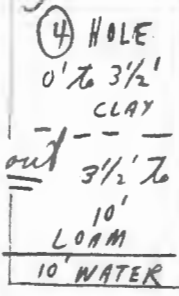 ④ HOLE
0' to 3½'
CLAY
out 3½' to
10'
LOAM
10' WATER